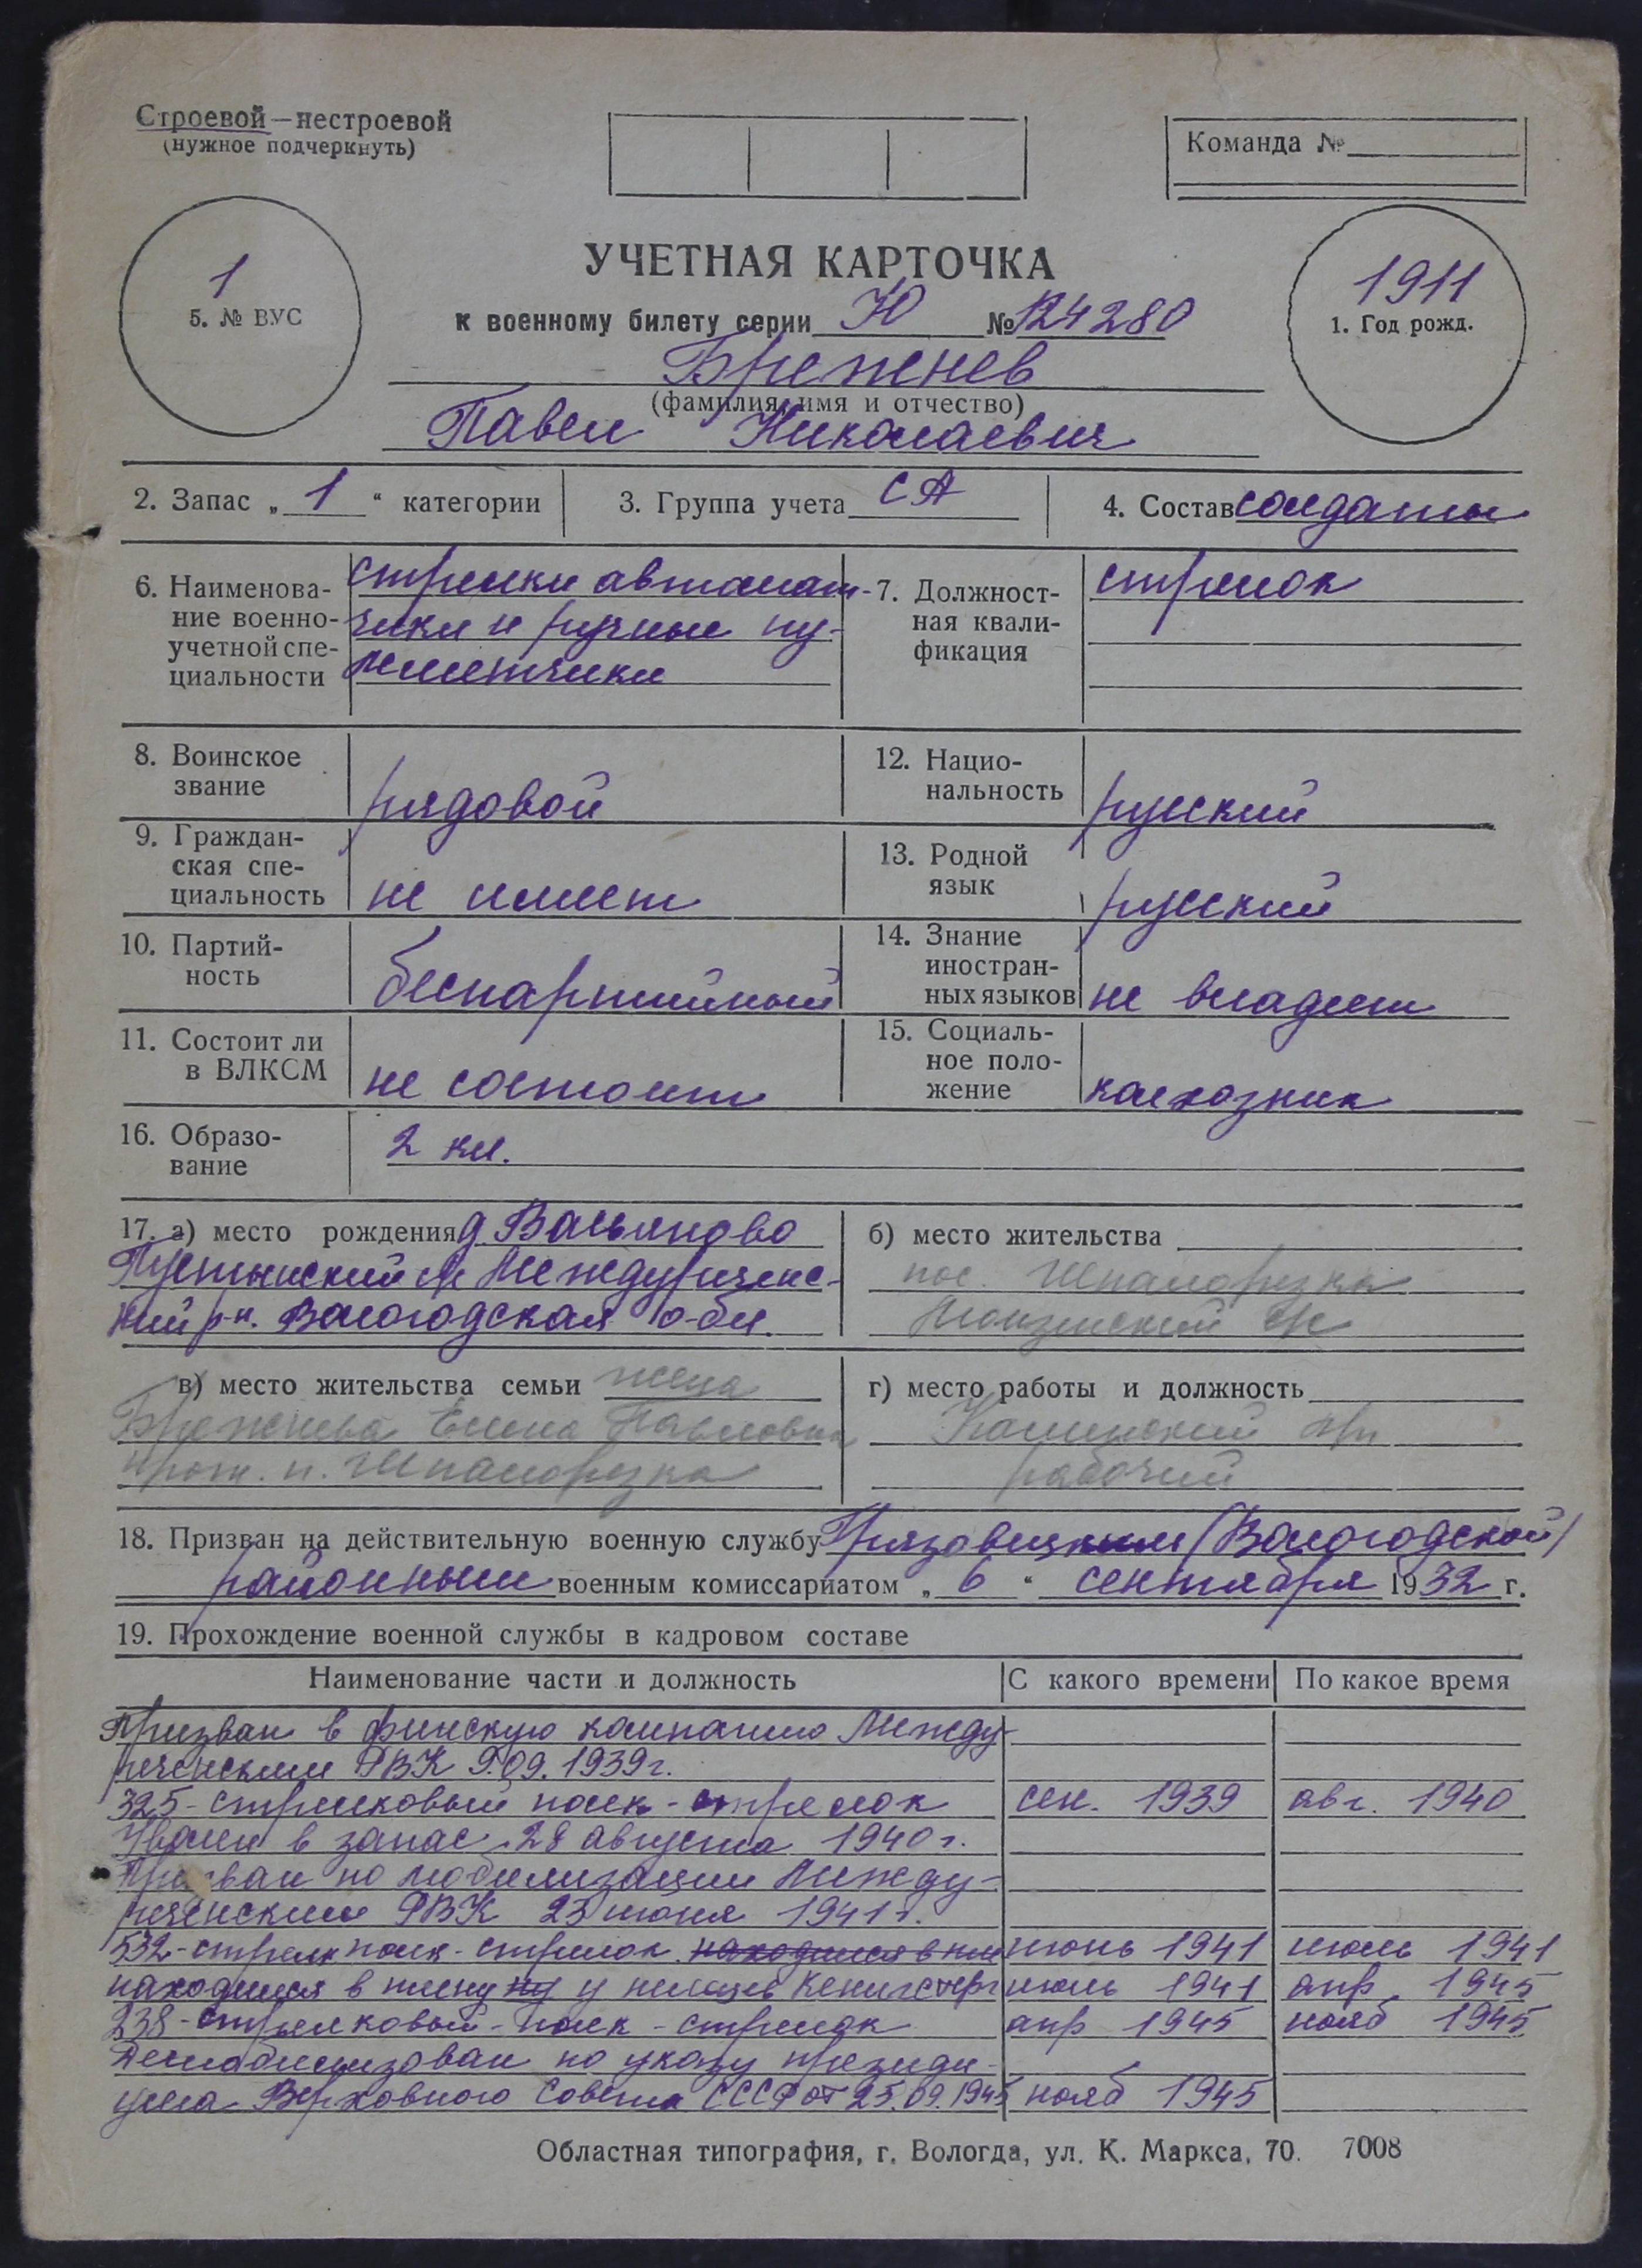 Строевой—нестроевой
(нужное подчеркнуть)
Команда №
1
5. № ВУС
УЧЕТНАЯ КАРТОЧКА
к военному билету серии Ю № 124280
1911
1. Год рожд.
Брежнев
(фамилия, имя и отчество)
Павел Николаевич
2. Запас „ 1 “ категории
3. Группа учета СА
4. Состав солдаты
6. Наименова-
ние военно-
учетной спе-
циальности
стрелки автомат-
чики и ручные пу-
леметчики
7. Должност-
ная квали-
фикация
стрелок
8. Воинское
звание
рядовой
12. Нацио-
нальность
русский
9. Граждан-
ская спе-
циальность
не имеет
13. Родной
язык
русский
10. Партий-
ность
беспартийный
14. Знание
иностран-
ных языков
не владеет
11. Состоит ли
в ВЛКСМ
не состоит
15. Социаль-
ное поло-
жение
колхозник
16. Образо-
вание
2 кл.
17. а) место рождения д Васьяново
Пустынский с/с Междуреченс-
кий р-н. Вологодская обл.
б) место жительства
пос. Шпалорезка
с/с
в) место жительства семьи жена
Брежнева Елена Павловна
прож. п. Шпалорезка
г) место работы и должность
рабочий
18. Призван на действительную военную службу Грязовецким (Вологодской)
районным военным комиссариатом „ 6 “ сентября 1932 г.
19. Прохождение военной службы в кадровом составе
Наименование части и должность
С какого времени
По какое время
Призван в финскую кампанию Между-
реченским РВК 9.09.1939г.
325-стрелковый полк-стрелок сен. 1939 авг. 1940
Уволен в запас 28 августа 1940г.
Призван по мобилизации Между-
реченским РВК 23 июня 1941г.
532-стрелк полк-стрелок находился в пле июнь 1941 июль 1941
находился в плену ну у немцев Кенигсберг июль 1941 апр 1945
238-стрелковый-полк-стрелок апр 1945 нояб 1945
Демобилизован по указу президи-
ума Верховного Совета СССР от 25.09.1945 нояб 1945
Областная типография, г. Вологда, ул. К. Маркса, 70. 7008